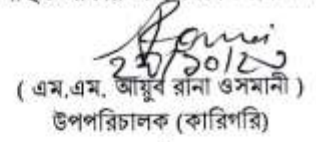 ২৩/১০/২০
( এম,এম, আয়ুব রানা ওসমানী )
উপপরিচালক (কারিগরি)